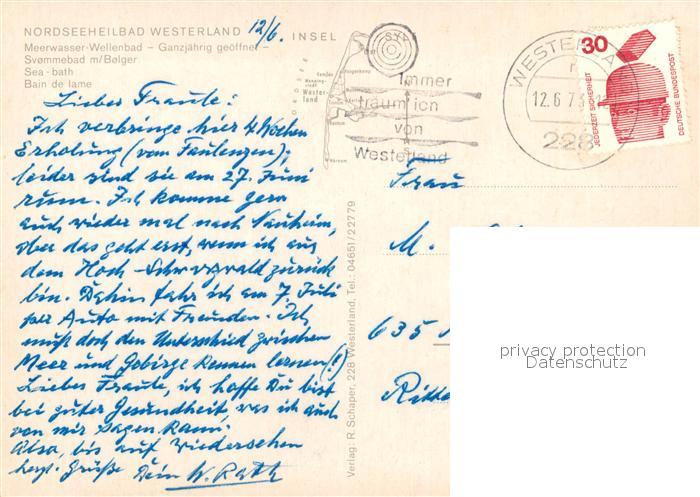 NORDSEEHEILBAD WESTERLAND 12/6. INSEL SYLT
Meerwasser-Wellenbad – Ganzjährig geöffnet –
Svømmebad m/Bølger
Sea - bath
Bain de lame
Lieber Traute:
Ich verbringe hier 4 Wochen
Erholung (vom Faulenzen);
leider sind sie am 27. Juni
rum. Ich komme gern
auch wieder mal nach Nauheim,
aber das geht erst, wenn ich aus
dem Hoch-Schwarzwald zurück
bin. Dahin fahr ich am 7. Juli
per Auto mit Freunden. Ich
muß doch den Unterschied zwischen
Meer und Gebirge kennen lernen (!)
Liebes Traute, ich hoffe Du bist
bei guter Gesundheit, was ich auch
von mir sagen kann.
Also, bis auf Wiedersehen
herzl. Grüße Dein W. Rath
Verlag: R. Schaper, 228 Westerland, Tel.: 04651/22779
Wester-
land
Immer
träum ich
von
Westerland
WESTERLA
12.6.7
228
30
JEDERZEIT SICHERHEIT
DEUTSCHE BUNDESPOST
Frau
M.
635
Ritte
privacy protection
Datenschutz